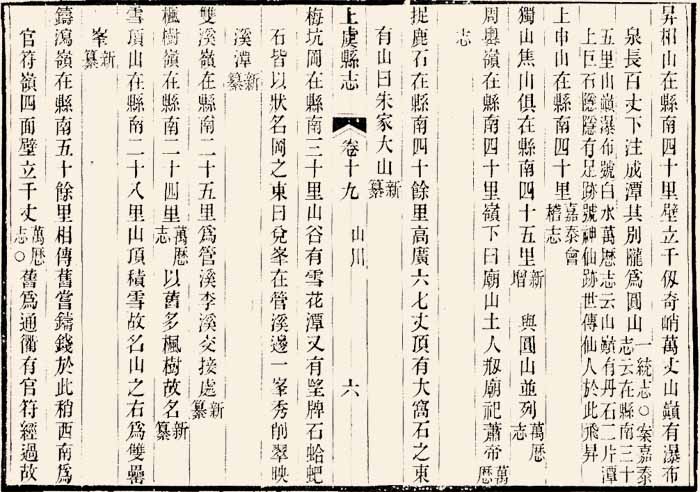 昇相山在縣南四十里壁立千仭奇峭萬丈山巔有瀑布
泉長百丈下注成潭其別隴爲圓山一統志○案嘉泰
志云在縣南三十
五里山巔瀑布號白水萬厯志云山巔有丹石二片潭
上巨石隱隱有足跡號神仙跡世傳仙人於此飛昇
上申山在縣南四十里嘉泰會
稽志
獨山焦山俱在縣南四十五里新
增與圓山並列萬厯
志
周嶴嶺在縣南四十里嶺下曰廟山土人刱廟祀蕭帝萬
厯
志
捉鹿石在縣南四十餘里高廣六七丈頂有大窩石之東
有山曰朱家大山新
纂
上虞縣志
卷十九
山川
六
梅坑岡在縣南三十里山谷有雪花潭又有望牌石蛤蚆
石皆以狀名岡之東曰兌峯在管溪邊一峯秀削翠映
溪潭新
纂
雙溪嶺在縣南二十五里爲管溪李溪交接處新
纂
楓樹嶺在縣南二十四里萬厯
志以舊多楓樹故名新
纂
雪頂山在縣南二十八里山頂積雪故名山之右爲雙罍
峯新
纂
鑄瀉嶺在縣南五十餘里相傳舊嘗鑄錢於此稍西南爲
官符嶺四面壁立千丈萬厯
志○舊爲通衢有官符經過故